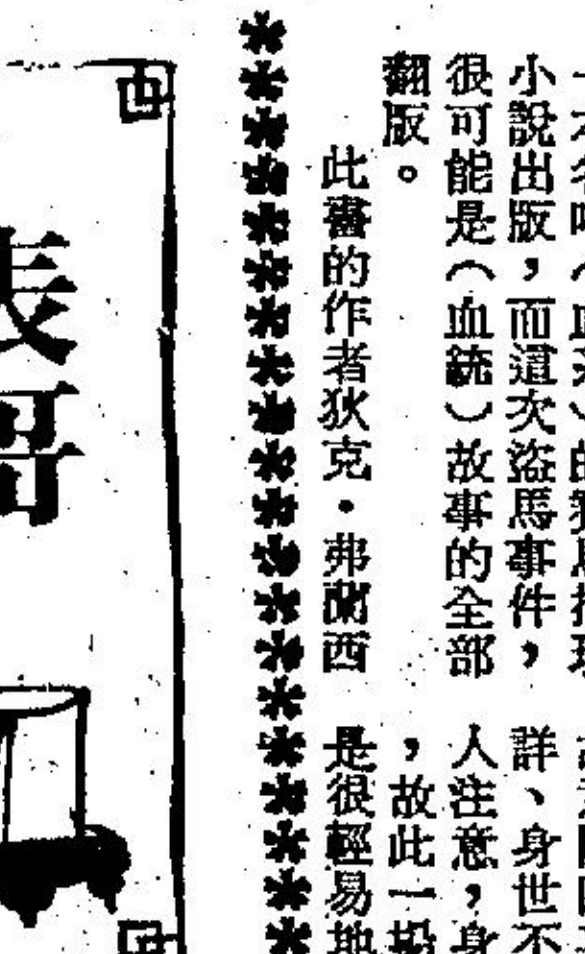 小說出版，而這次盜馬事件，
很可能是（血統）故事的全部
翻版。
此書的作者狄克・弗蘭西
詳、身世不
人注意，身
，故此一
是很輕易地